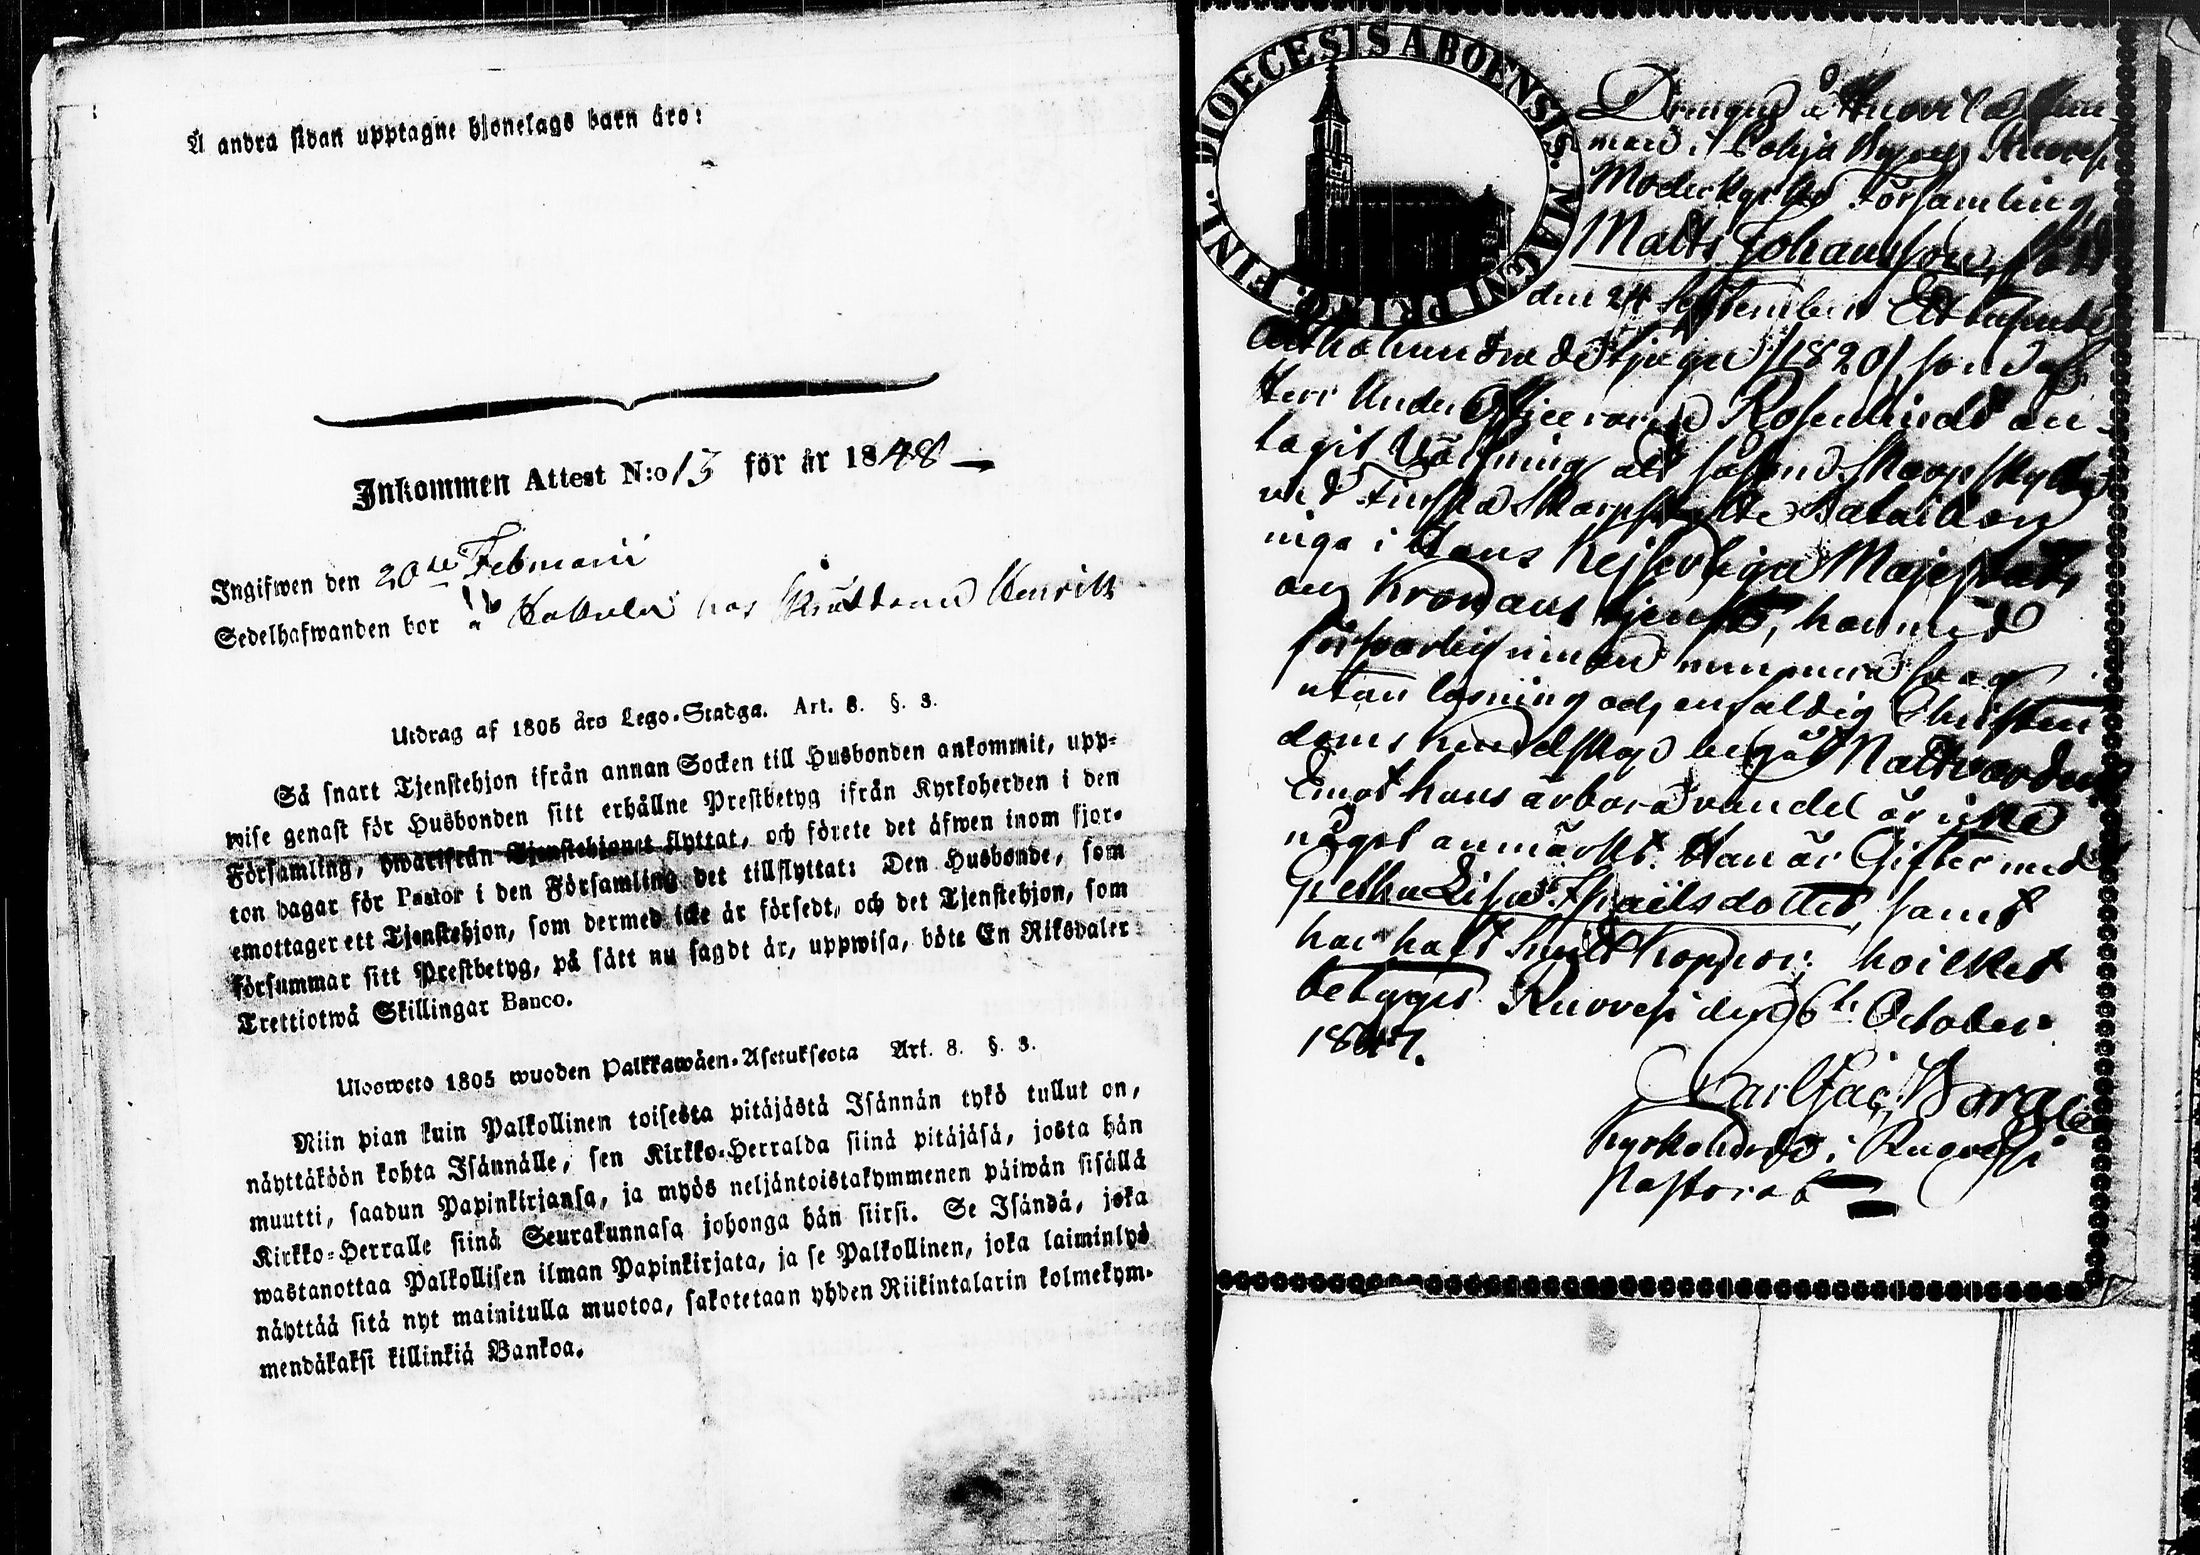 Å andra sidan upptagne hjonelags barn äro:
Inkommen Attest N:o 13 för år 1848
Ingifwen den 20de Februarii
Sedelhafwanden bor å hos Henrik
Utdrag af 1805 års Lego-Stadga. Art. 8. §. 3.
Så snart Tjenstehjon ifrån annan Socken till Husbonden ankommit, upp-
wise genast för Husbonden sitt erhållne Prestbetyg ifrån Kyrkoherden i den
Församling, hwarifrån Tjenstehjonet flyttat, och förete det äfwen inom fjor-
ton dagar för Pastor i den Församling det tillflyttat: Den Husbonde, som
emottager ett Tjenstehjon, som dermed icke är försedt, och det Tjenstehjon, som
försummar sitt Prestbetyg, på sätt nu sagdt är, uppwisa, böte En Riksdaler
Trettiotwå Skillingar Banco.
Ulosweto 1805 wuoden Palkkawäen-Asetuksesta Art. 8. §. 3.
Niin pian kuin Palkollinen toisesta pitäjästä Isännän tykö tullut on,
näyttäköön kohta Isännälle, sen Kirkko-Herralda siinä pitäjäsä, josta hän
muutti, saadun Papinkirjansa, ja myös neljäntoistakymmenen päiwän sisällä
Kirkko-Herralle siinä Seurakunnasa johonga hän siirsi. Se Isändä, joka
wastanottaa Palkollisen ilman Papinkirjata, ja se Palkollinen, joka laiminlyö
näyttää sitä nyt mainitulla muotoa, sakotetaan yhden Riikintalarin kolmekym-
mendäkaksi killinkiä Bankoa.
FINL. DIOECESIS ABOENSIS. MAGNI PRINC.
Drengen å
i Pohja Ruovesi
Moderkyrko Församling,
Matts Johansson, född
den 24 September Ett tusende
Åttahundrade tjugu /1820/, som af
Herr Under Officeraren Rosenlindt an-
tagit Värfning att såsom Skarpskytt
vid Finska Skarpskytte Bataillon
inga i Hans Kejserliga Majestäts
och Kronans tjenst, har med
försvarlig innan numera svag
utan läsning och enfaldig Christen
doms kundskap begått Nattvarden
Emot hans ärbara vandel är icke
något anmärkt. Han är Gifter med
Gretha Lisa Israelsdotter, samt
har haft skyddskoppor: hvilket
betygas. Ruovesi den 6te October
1847.
Carl Jac.
Kyrkoherde i Ruovesi
Pastorat